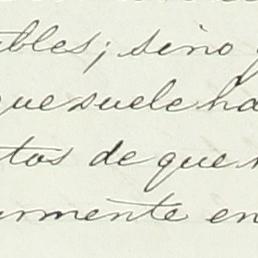 bles; sino
que suele ha
tos de que
rmente en